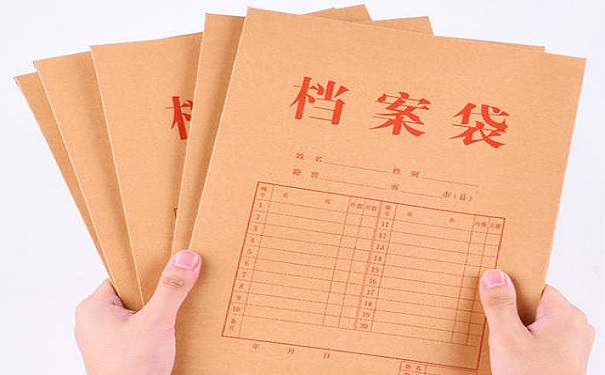 档案袋
档
姓名 性别
籍贯 省 市(县)
编号 名 称 编号 名 称
1 11
2 12
3 13
4 14
5 15
6 16
7 17
8 18
9 19
10 20
备注
年 月 日